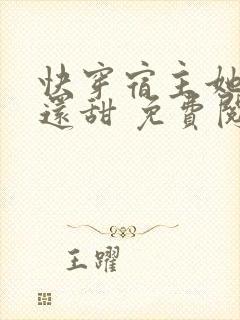 快穿宿主她
還甜 免費閱
王躍